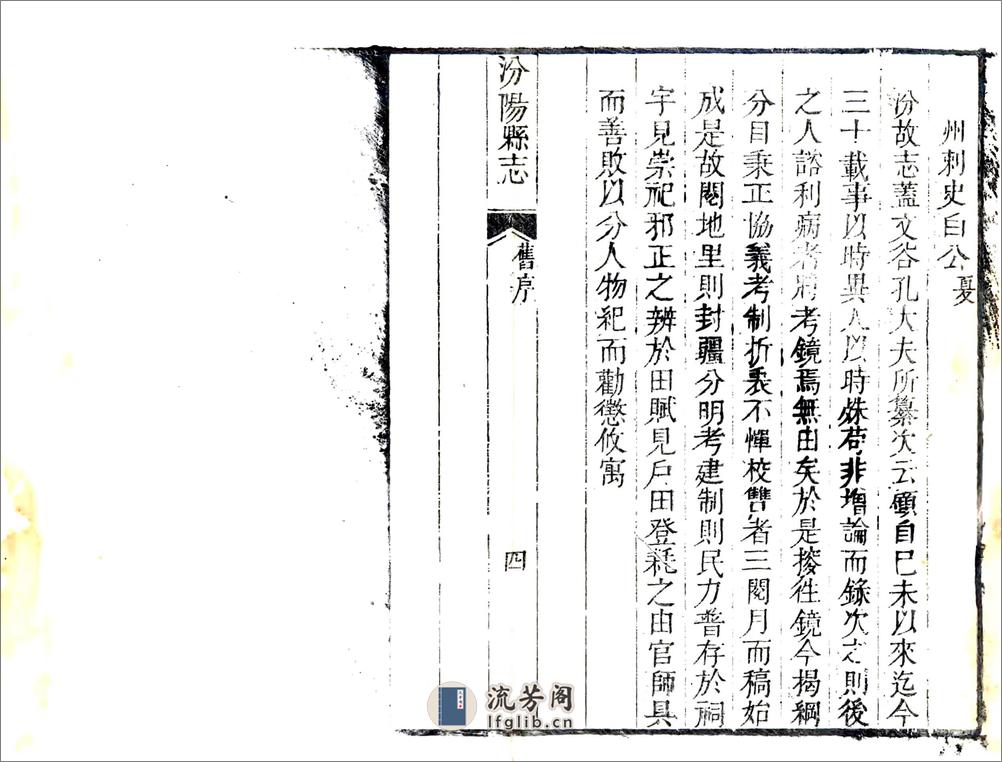 州刺史白公夏
汾故志蓋文谷孔大夫所纂次云顧自巳未以來迄今
三十載事以時異人以時殊苟非增論而錄次之則後
之人諮利病者將考鏡焉無由矣於是摭徃鏡今揭綱
分目秉正協義考制折衷不憚校讐者三閱月而稿始
成是故閱地里則封疆分明考建制則民力普存於祠
宇見崇祀邪正之辨於田賦見戶田登耗之由官師具
而善敗以分人物紀而勸懲攸寓
汾陽縣志
舊序
四
流芳阁
lfglib.cn